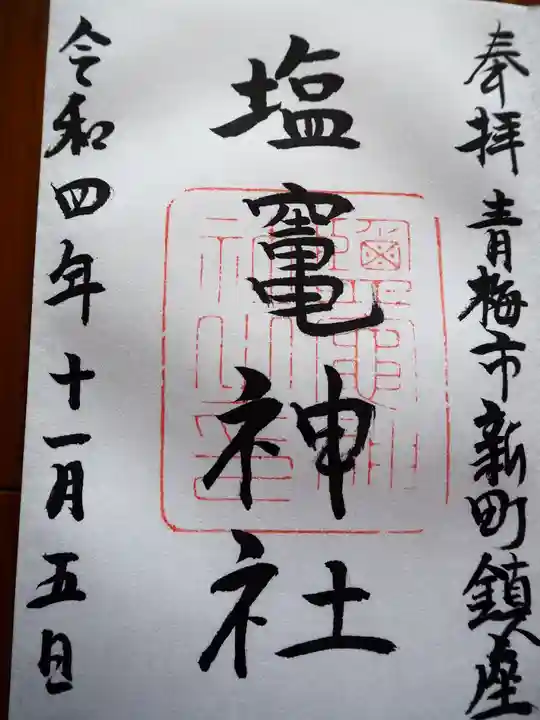 奉拝 青梅市新町鎮座
塩竈神社
令和四年十一月五日